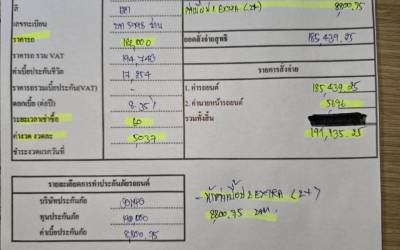 สี เทา
เลขทะเบียน
ราคารถ 182,000
ราคารถ รวม VAT 194,740
ค่าเบี้ยประกันชีวิต 17,854
ราคารถรวมเบี้ยประกัน(VAT) -
ดอกเบี้ย (ต่อปี)
ระยะเวลาเช่าซื้อ 60
ค่างวด งวดละ 5037
ชำระงวดแรกวันที่
8,800.75
ยอดสั่งจ่ายสุทธิ 185,439.25
รายการสั่งจ่าย
1. ค่ารถยนต์ 185,439.25
2. ค่านายหน้ารถยนต์ 5696
รวมทั้งสิ้น 191,135.25
รายละเอียดการทำประกันภัยรถยนต์
บริษัทประกันภัย
ทุนประกันภัย
ค่าเบี้ยประกันภัย 8,800.75
EXTRA (2+)
8800.75